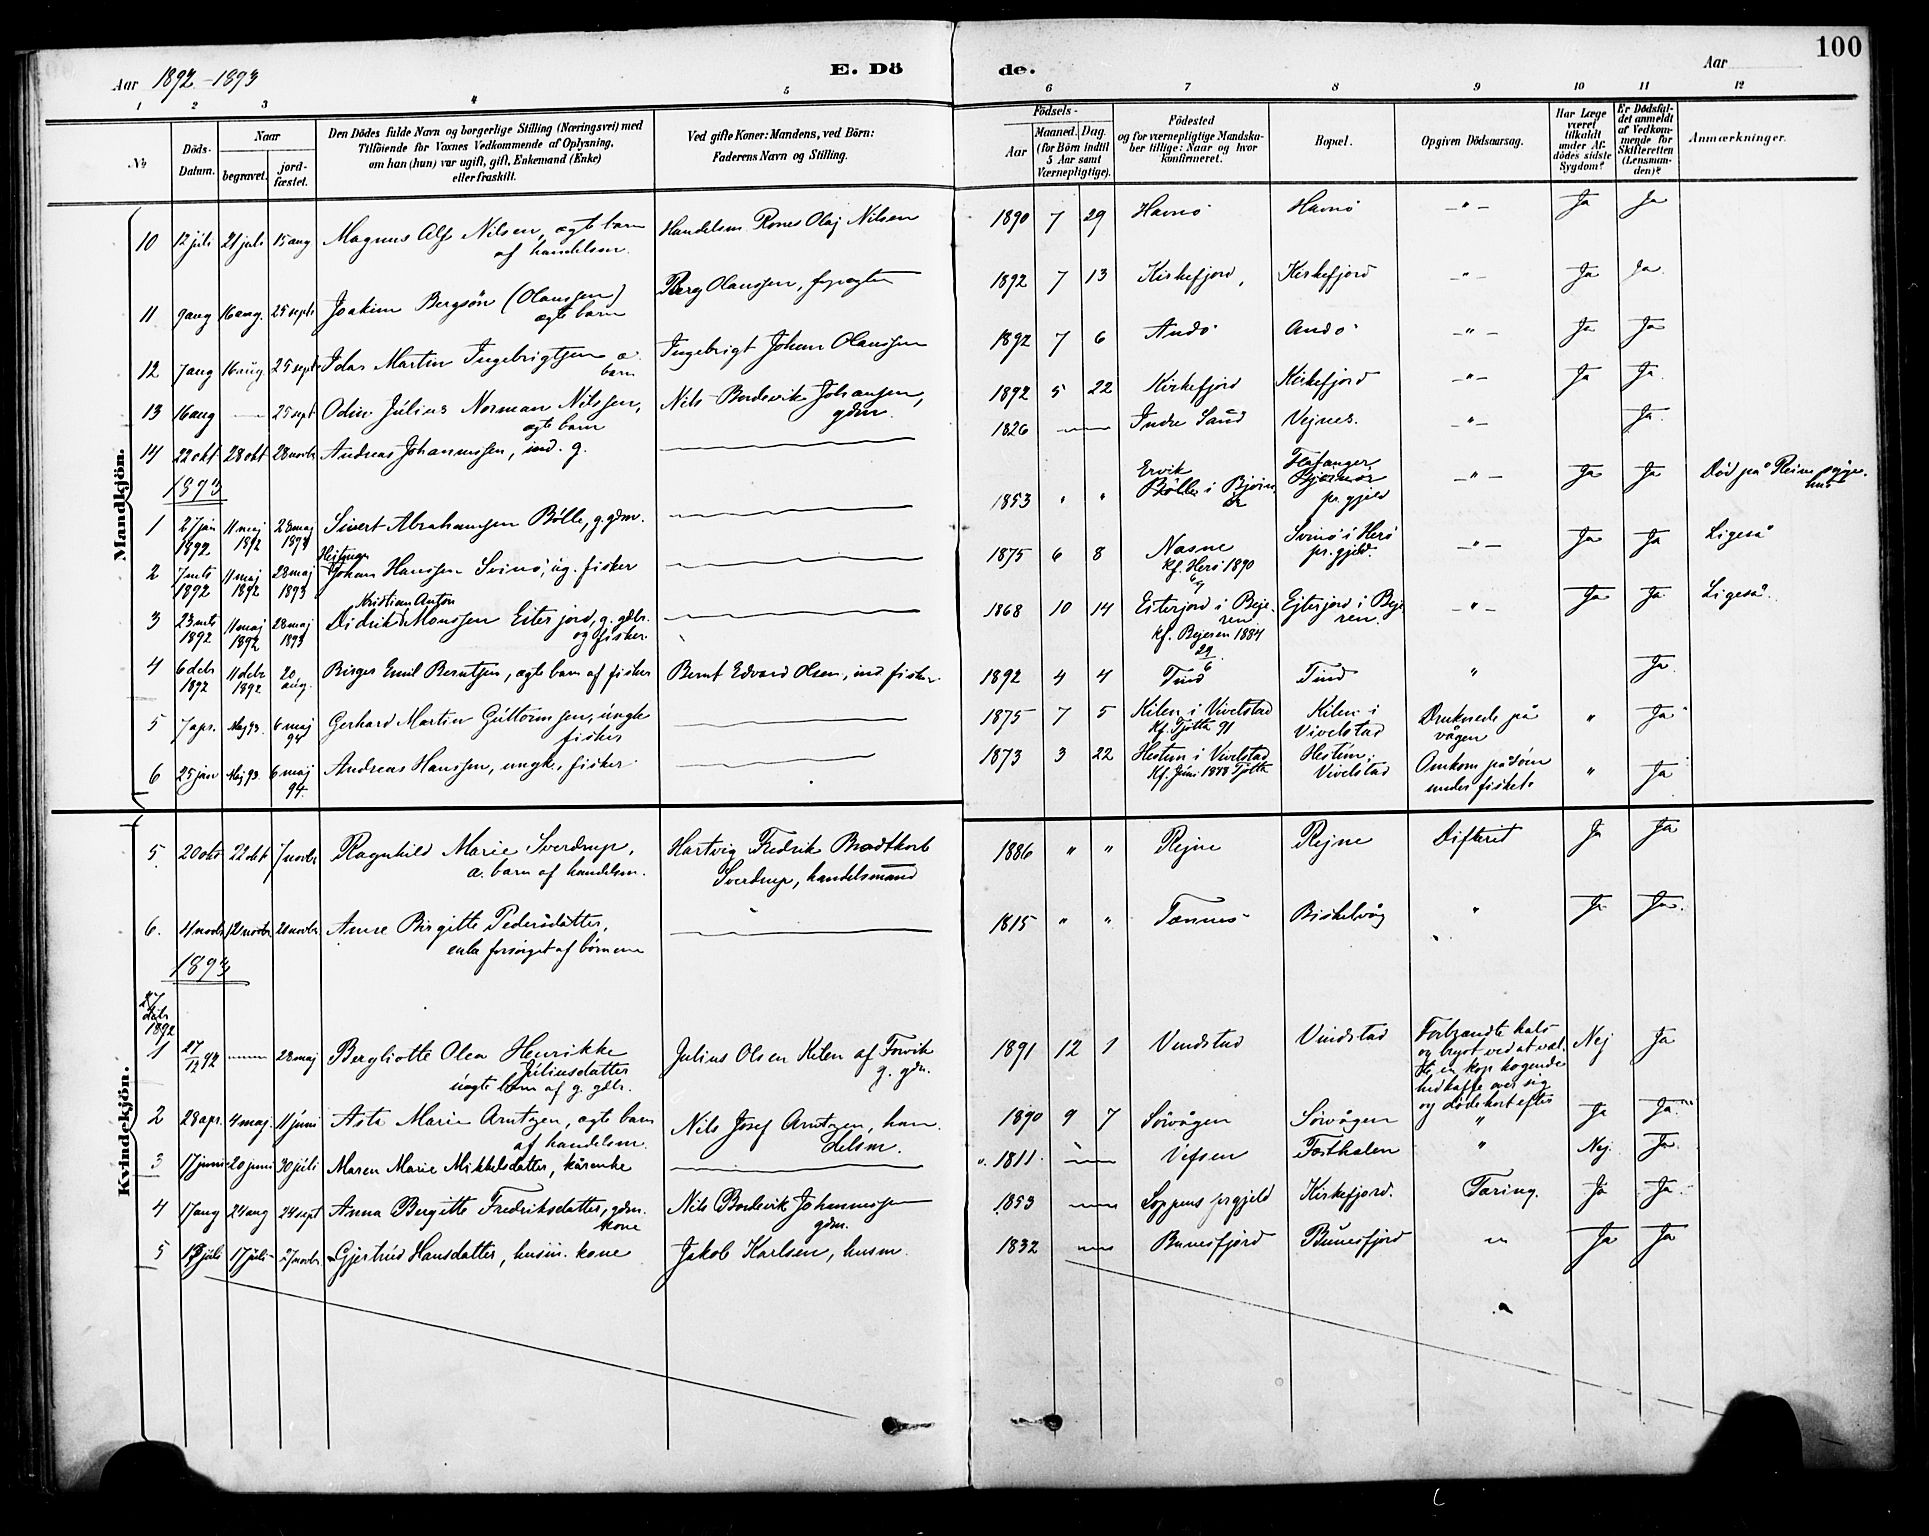 Aar 1892-1893
E. Dö
de.
Aar
100
1 2 3 4 5 6 7 8 9 10 11 12
№
Döds-Datum.
Naar
begravet.
jord-fæstet.
Den Dödes fulde Navn og borgerlige Stilling (Næringsvei) med
Tilföiende för Voxnes Vedkommende af Oplysning,
om han (hun) var ugift, gift, Enkemand (Enke)
eller fraskilt.
Ved gifte Koner: Mandens, ved Börn:
Faderens Navn og Stilling.
Födsels-
Aar
Maaned. Dag.
(for Börn indtil
5 Aar samt
Værnepligtige).
Födested
og for værnepligtige Mandska-
ber tillige: Naar og hvor
konfirmeret.
Bopæl.
Opgiven Dödsaarsag.
Har Læge
været
tilkaldt
under Af-
dödes sidste
Sygdom?
Er Dödsfal-
det anmeldt
af Vedkom-
mende for
Skifteretten
(Lensman-
den)?
Anmærkninger.
Mandkjön.
10 12 juli 21 juli 15 aug Magnus Alf Nilsen, ægte barn af handelsm. Handelsm. Rones Olaj Nilsen 1890 7 29 Havnö Havnö — " — Ja Ja
11 9 aug 16 aug. 25 sept Joakim Bergsön (Olanssen) ægte barn Berg Olanssen, 1892 7 13 Kirkefjord, Kirkefjord — " — Ja Ja
12 7 aug 16 aug. 25 sept Idar Martin Ingebrigtsen æ. barn Ingebrigt Johan Olanssen 1892 7 6 Andö Andö — " — Ja Ja
13 16 aug — 25 sept Odin Julius Norman Nilssen, ægte barn Nils Bordevik Johansen, gdm. 1892 5 22 Kirkefjord Kirkefjord — " — Ja Ja
14 22 okt 28 okt 28 novbr Andreas Johannessen, ind. g. — 1826 — Indre Sand Vejnes. — " — Ja
1893
1 27 jan 1892 11 maj 1892 28 maj 1893 Sivert Abrahamsen Bölle, g. gdm. — 1853 " " Ervik Bölle i Bjørnör Flatanger, Bjørnör pr.gjeld — " — Ja Ja Död på Reine
2 7 mts 1892 11 maj 1892 28 maj 1893 Johan Hanssen Svinö, ug. fisker — 1875 6 8 Nasne kf. Herö 1890 Svinö i Herö pr.gjeld. — " — Ja Ja Ligeså
3 23 mts 1892 11 maj 1892 28 maj 1893 Didrik Kristian Anton Monssen Eiterjord, g. gdbr. og fisker — 1868 10 14 Eiterjord i Bejeren kf. Bejeren 1884 Ejterjord i Bejeren — " — Ja Ja Ligeså.
4 6 debr 1892 11 debr 1892 20 aug. Birger Emil Berntsen, ægte barn af fisker Bernt Edvard Olsen, ind. fisker 1892 4 4 Tind Tind " Ja
5 7 apr. Maj 93. 6 maj 94 Gerhard Martin Guttormsen, ungk. fisker — 1875 7 5 Kilen i Vivelstad kf. Tjötta 91 Kilen i Vivelstad Druknede på vågen " Ja
6 25 jan Maj 93. 6 maj 94. Andreas Hanssen, ungk, fisker — 1873 3 22 Hestun i Vivelstad Kf. Juni 1888 Tjötta Hestun, Vivelstad Omkom på söen under fisket. " Ja
Kvindekjön.
5. 20 okt 22 okt 7 novbr Ragnhild Marie Sverdrup, æ. barn af handelsm. Hartvig Fredrik Bradtkorb Sverdrup, handelsmand 1886 " " Rejne Rejne Difterit Ja Ja
6. 4 novbr 12 novbr 28 novbr Anne Birgitte Pedersdatter, enke forsörget af börnene — 1815 " " Tennes Biskelvåg " Ja Ja.
1893
27 debr 1892
1 27/12 92 — 28 maj Bergliotte Olea Henrikke Juliusdatter uægte barn af g. gdbr. Julius Olsen Kilen af Forvik g. gdm. 1891 12 1 Vindstad Vindstad Forbrændte hals og bryst ved at vælte en kop kogende hed kaffe over sig og döde kort efter Nej Ja
2 28 apr. 4 maj. 11 juni Asta Marie Arntzen, ægte barn af handelsm. Nils Josef Arntzen, handelsm. 1890 9 7 Sörvågen Sörvågen " Ja Ja
3 17 juni 20 juni 30 juli Maren Marie Mikkelsdatter, kårenke — 1811 — Vefsen Festhalen " Nej. Ja.
4 17 aug 24 aug 24 sept Anna Bergitte Fredriksdatter, gdm. kone Nils Bordevik Johannessen gdm. 1853 — Loppens prgjeld Kirkefjord. Tæring. Ja Ja
5 13 juli 17 juli 27 novbr Gjertrud Hansdatter, husm. kone Jakob Karlsen, husm. 1832 — Bunesfjord Bunesfjord " Ja Ja